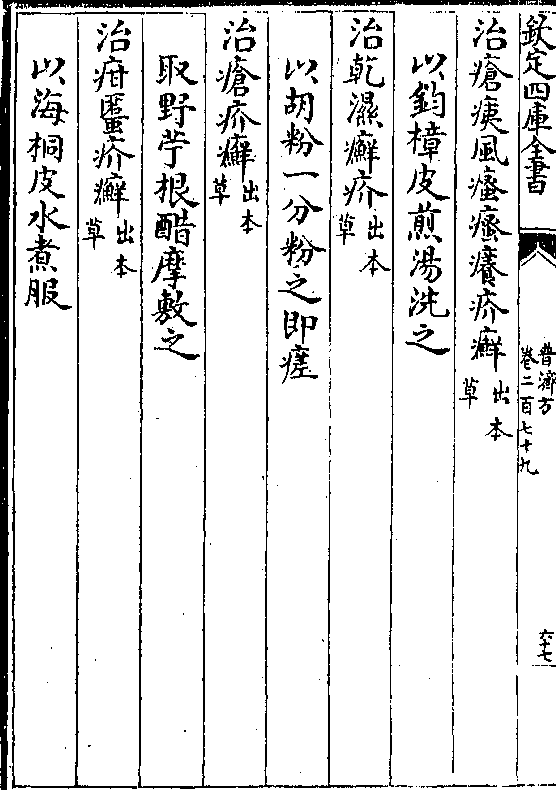 欽定四庫全書
普濟方
卷二百七十九
六十七
治瘡痍風瘙癢疥癬出本草
以釣樟皮煎湯洗之
治乾濕癬疥出本草
以胡粉一分粉之即瘥
治瘡疥癬出本草
取野苧根醋摩敷之
治疳䘌疥癬出本草
以海桐皮水煮服